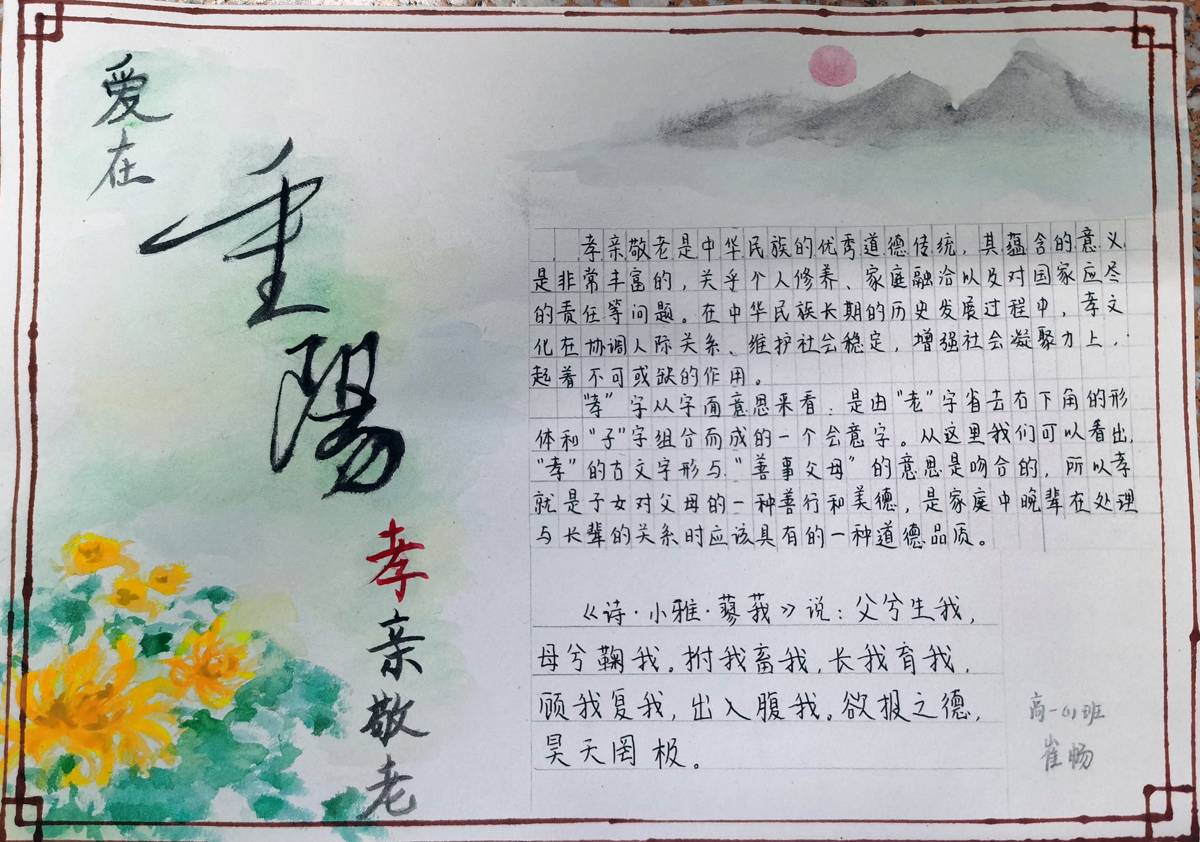 爱在
重陽
孝亲敬老
孝亲敬老是中华民族的优秀道德传统，其蕴含的意义
是非常丰富的，关乎个人修养、家庭融洽以及对国家应尽
的责任等问题。在中华民族长期的历史发展过程中，孝文
化在协调人际关系、维护社会稳定，增强社会凝聚力上，
起着不可或缺的作用。
“孝”字从字面意思来看：是由“老”字省去右下角的形
体和“子”字组合而成的一个会意字。从这里我们可以看出，
“孝”的古文字形与“善事父母”的意思是吻合的，所以孝
就是子女对父母的一种善行和美德，是家庭中晚辈在处理
与长辈的关系时应该具有的一种道德品质。
《诗·小雅·蓼莪》说：父兮生我，
母兮鞠我。拊我畜我，长我育我，
顾我复我，出入腹我。欲报之德，
昊天罔极。
高一（1）班
崔畅